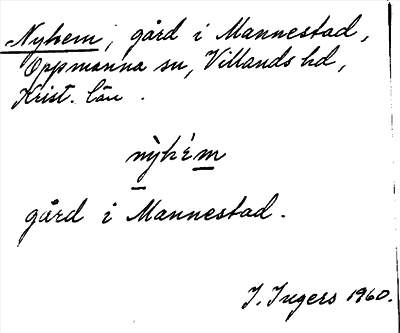 Nyhem, gård i Mannestad,
Oppmanna sn, Villands hd,
Krist. län.
nỳhém
gård i Mannestad.
I. Ingers 1960.